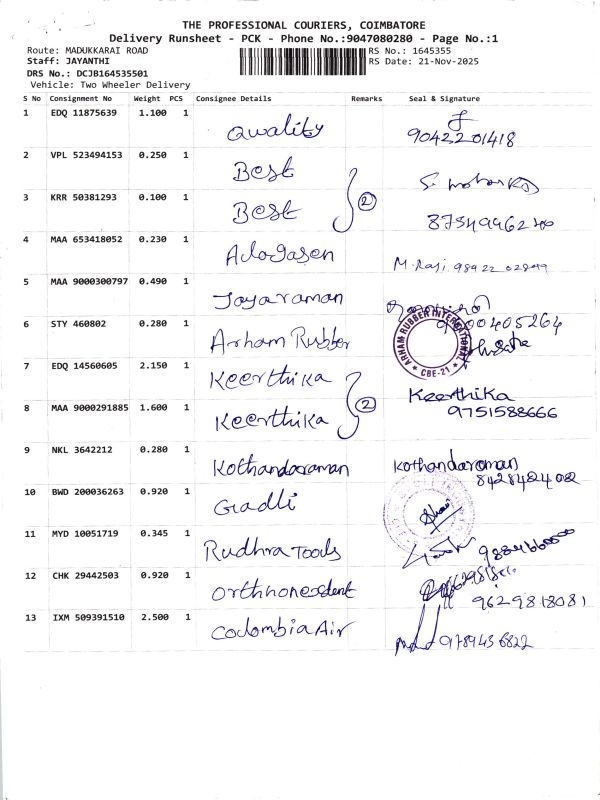 THE PROFESSIONAL COURIERS, COIMBATORE
Delivery Runsheet - PCK - Phone No.:9047080280 - Page No.:1
Route: MADUKKARAI ROAD RS No.: 1645355
Staff: JAYANTHI RS Date: 21-Nov-2025
DRS No.: DCJB164535501
Vehicle: Two Wheeler Delivery
S No Consignment No Weight PCS Consignee Details Remarks Seal & Signature
1 EDQ 11875639 1.100 1 Quality
9042201418
2 VPL 523494153 0.250 1 Best
3 KRR 50381293 0.100 1 Best 2
4 MAA 653418052 0.230 1
M. Raji
5 MAA 9000300797 0.490 1 Jayaraman
6 STY 460802 0.280 1 Arham Rubber
ARHAM RUBBER INTERNATIONAL
CBE-21
7 EDQ 14560605 2.150 1 Keerthika Keerthika
8 MAA 9000291885 1.600 1 Keerthika 2 9751588666
9 NKL 3642212 0.280 1 Kothandaraman Kothandaraman
10 BWD 200036263 0.920 1
11 MYD 10051719 0.345 1 Rudhra Tools
12 CHK 29442503 0.920 1
9629818081
13 IXM 509391510 2.500 1 Colombia Air
9789436822